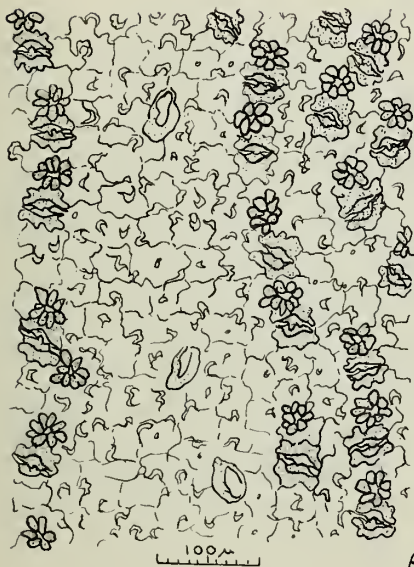 100μ
A